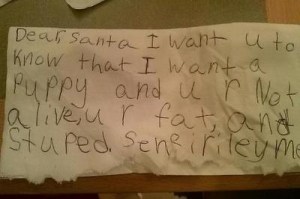 Dear, santa I want u to
know that I want a
puppy and u r Not
alive, u r fat, and
stuped. senseirileyme